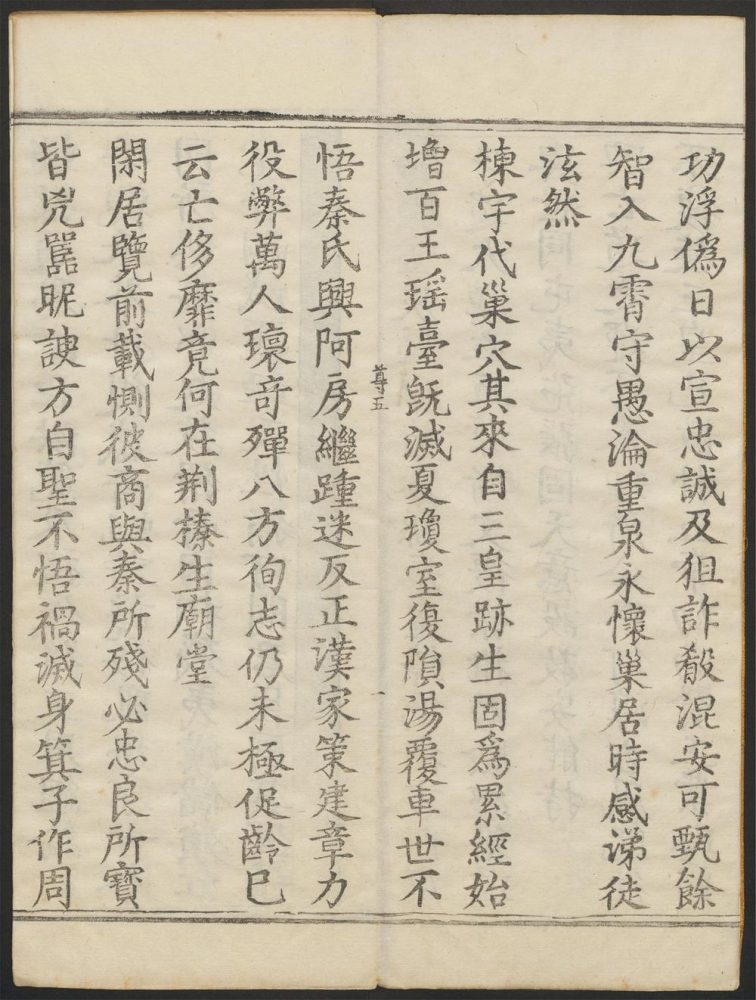 功浮僞日以宣忠誠及狙詐殽混安可甄餘
智入九霄守愚淪重泉永懷巢居時感涕徒
泫然
棟宇代巢穴其來自三皇跡生固爲累經始
增百王瑶臺既滅夏瓊室復隕湯覆車世不
尊五
悟秦氏興阿房繼踵迷反正漢家策建章力
役弊萬人瓌奇殫八方徇志仍未極促齡已
云亡侈靡竟何在荆榛生廟堂
閑居覽前載惻彼商與秦所殘必忠良所寶
皆兇嚚昵諛方自聖不悟禍滅身箕子作周